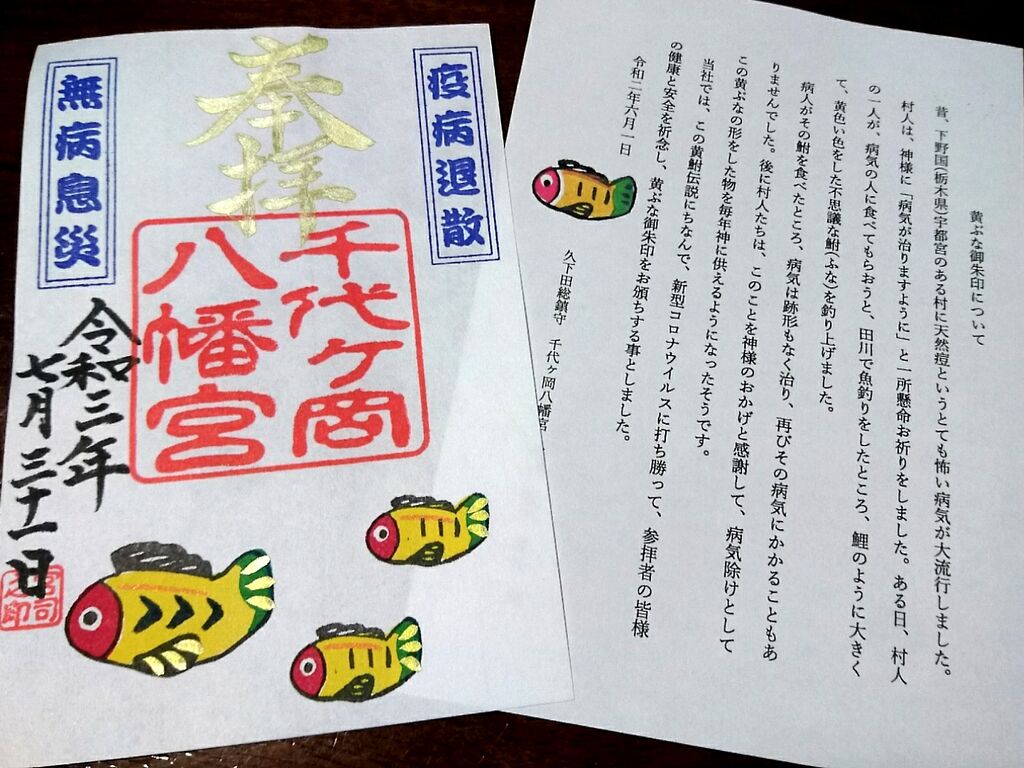 疫病退散
奉拝
無病息災
千代ケ岡
八幡宮
令和三年
七月三十一日
宮司
之印
黄ぶな御朱印について
昔、下野国(栃木県)宇都宮のある村に天然痘というとても怖い病気が大流行しました。
村人は、神様に「病気が治りますように」と一所懸命お祈りをしました。ある日、村人
の一人が、病気の人に食べてもらおうと、田川で魚釣りをしたところ、鯉のように大きく
て、黄色い色をした不思議な鮒(ふな)を釣り上げました。
病人がその鮒を食べたところ、病気は跡形もなく治り、再びその病気にかかることもあ
りませんでした。後に村人たちは、このことを神様のおかげと感謝して、病気除けとして
この黄ぶなの形をした物を毎年神に供えるようになったそうです。
当社では、この黄鮒伝説にちなんで、新型コロナウイルスに打ち勝って、参拝者の皆様
の健康と安全を祈念し、黄ぶな御朱印をお頒ちする事としました。
令和二年六月一日
久下田総鎮守 千代ヶ岡八幡宮